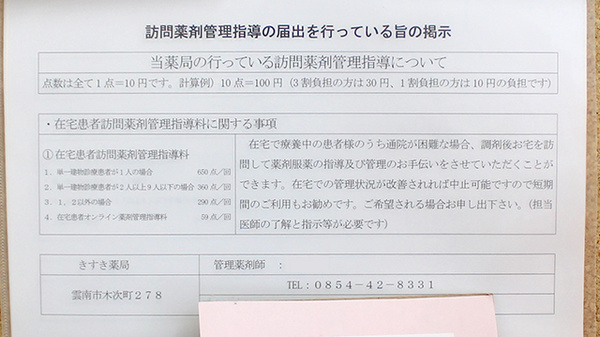 訪問薬剤管理指導の届出を行っている旨の掲示
当薬局の行っている訪問薬剤管理指導について
点数は全て1点=10円です。計算例）10点=100円（3割負担の方は30円、1割負担の方は10円の負担です）
・在宅患者訪問薬剤管理指導料に関する事項
①在宅患者訪問薬剤管理指導料
1．単一建物診療患者が1人の場合 650点/回
2．単一建物診療患者が2人以上9人以下の場合 360点/回
3．1、2以外の場合 290点/回
4．在宅患者オンライン薬剤管理指導料 59点/回
在宅で療養中の患者様のうち通院が困難な場合、調剤後お宅を訪
問して薬剤服薬の指導及び管理のお手伝いをさせていただくことが
できます。在宅での管理状況が改善されれば中止可能ですので短期
間のご利用もお勧めです。ご希望される場合お申し出下さい。（担当
医師の了解と指示等が必要です）
きすき薬局
管理薬剤師 ：
雲南市木次町278
TEL：0854-42-8331